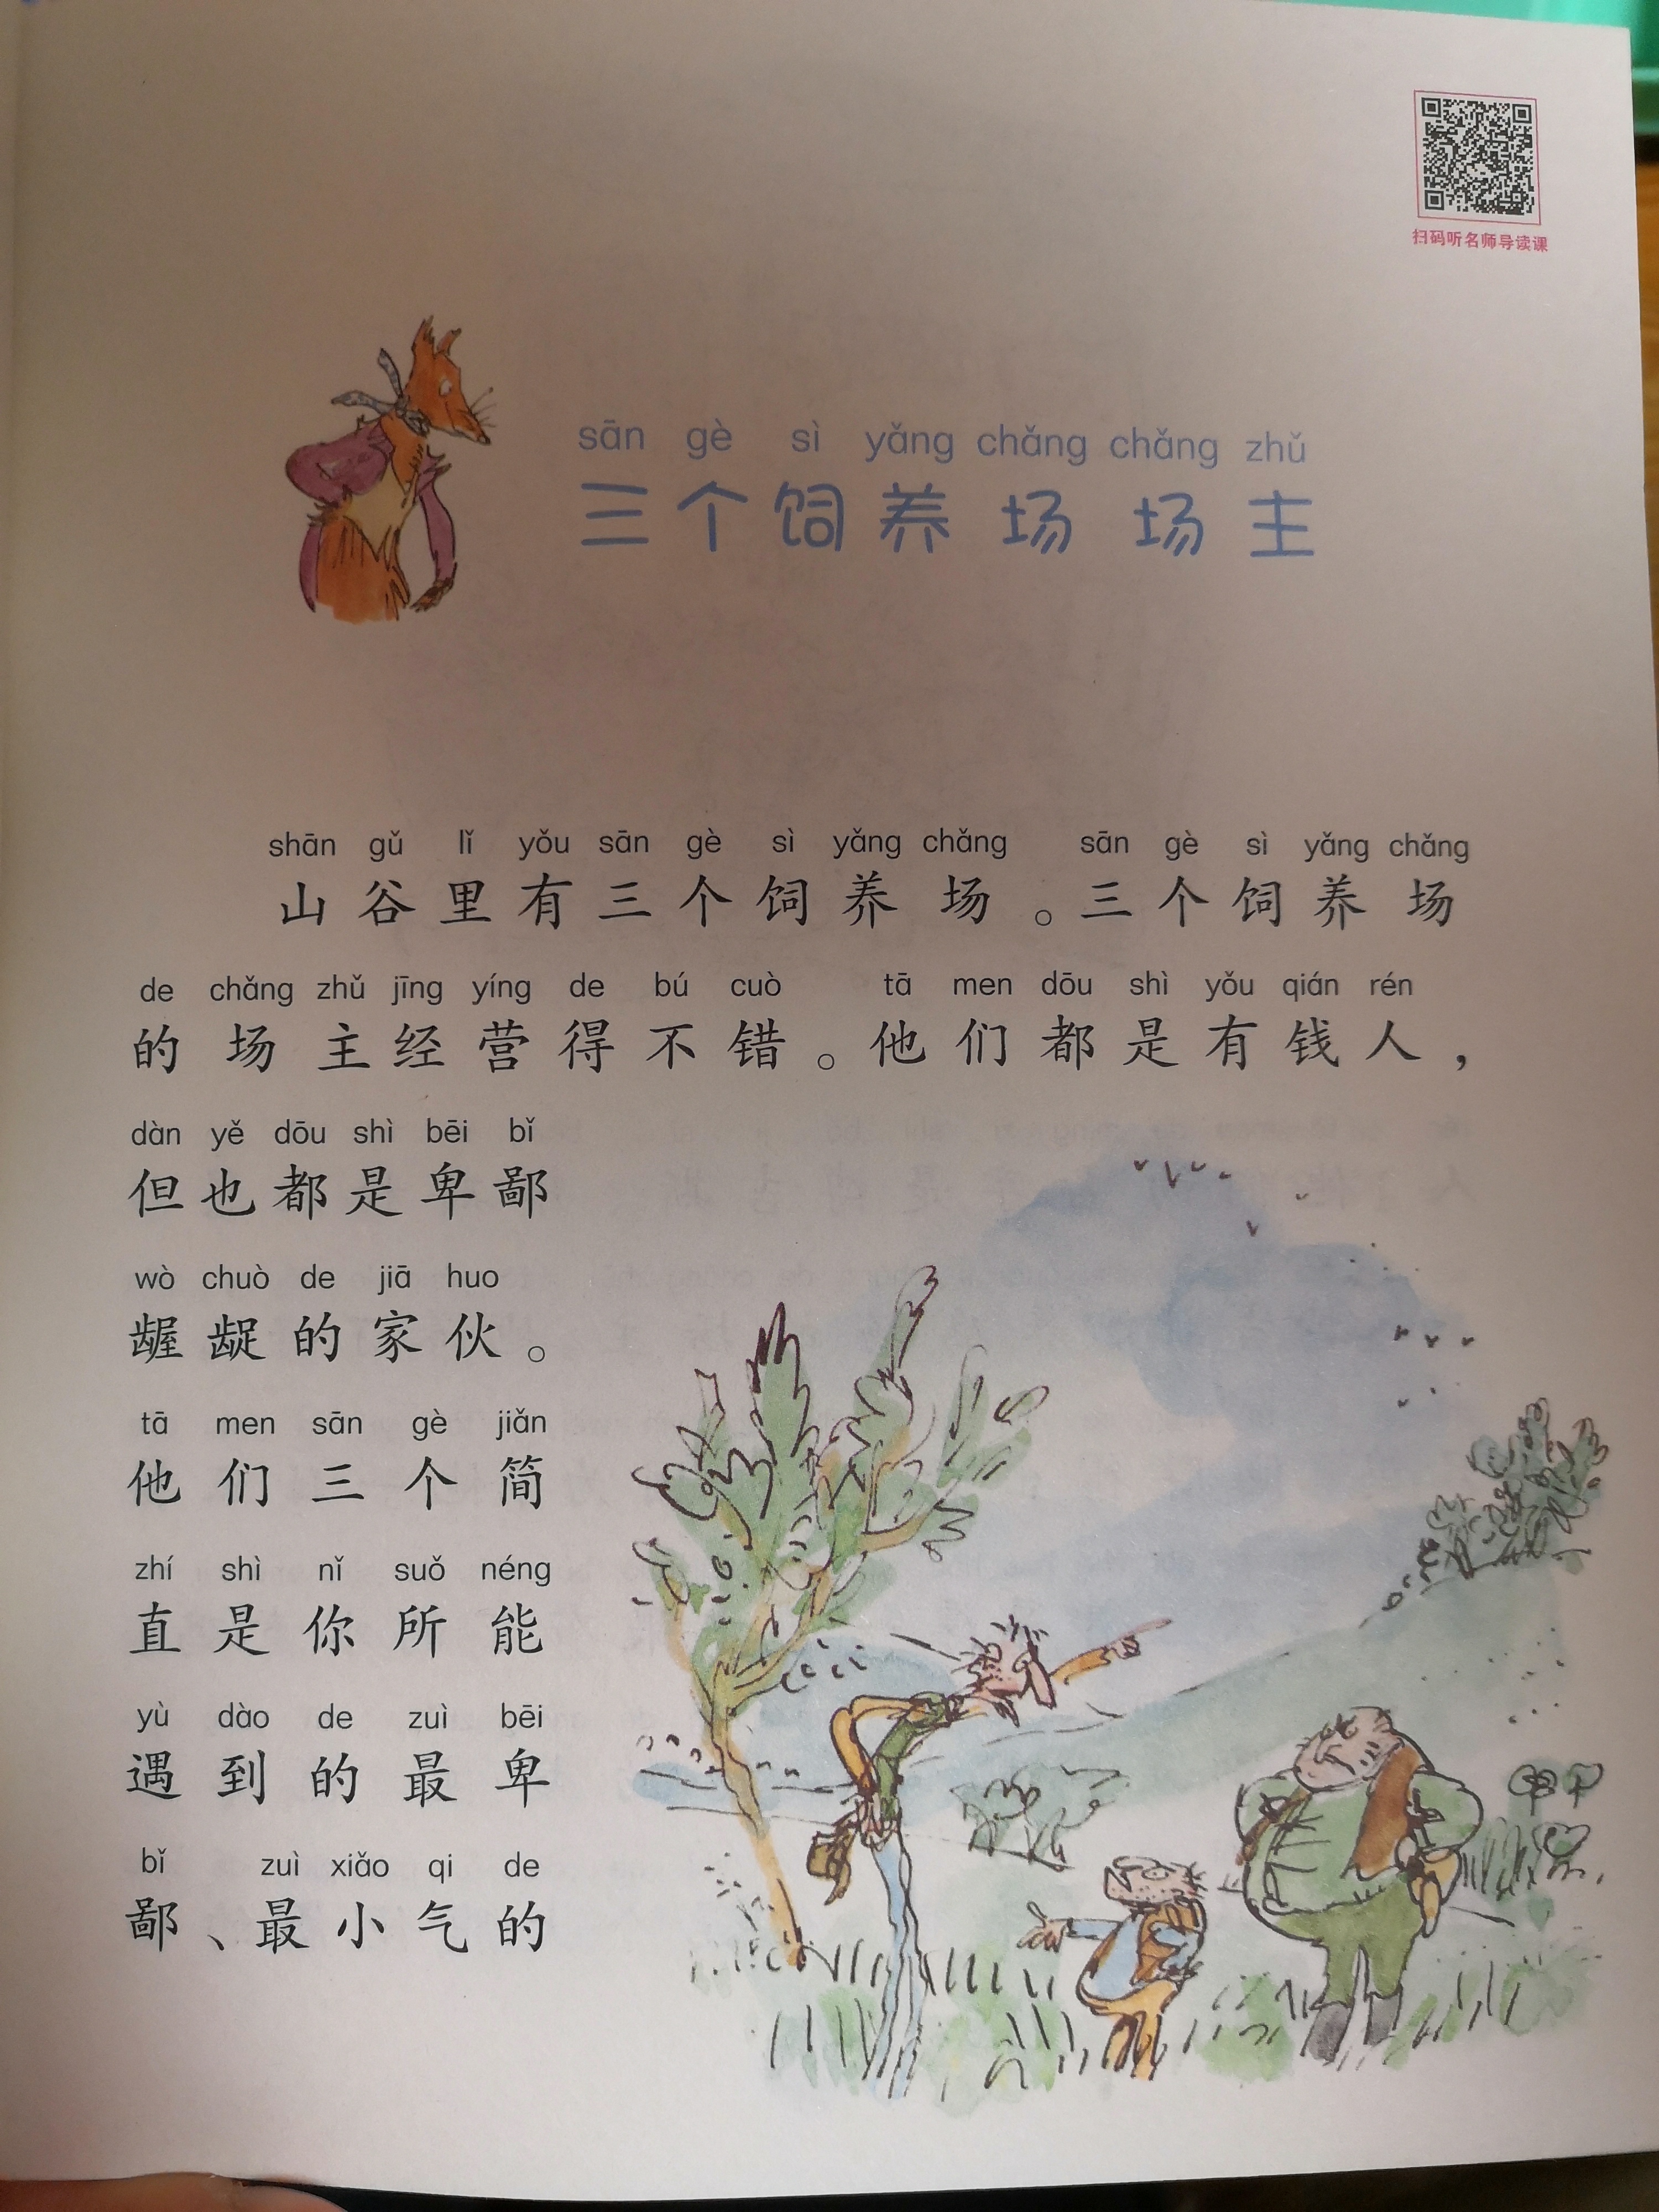 扫码听名师导读课
sān gè sì yǎng chǎng chǎng zhǔ
三个饲养场场主
shān gǔ lǐ yǒu sān gè sì yǎng chǎng sān gè sì yǎng chǎng
山谷里有三个饲养场。三个饲养场
de chǎng zhǔ jīng yíng de bú cuò tā men dōu shì yǒu qián rén
的场主经营得不错。他们都是有钱人，
dàn yě dōu shì bēi bǐ
但也都是卑鄙
wò chuò de jiā huo
龌龊的家伙。
tā men sān gè jiǎn
他们三个简
zhí shì nǐ suǒ néng
直是你所能
yù dào de zuì bēi
遇到的最卑
bǐ zuì xiǎo qi de
鄙、最小气的